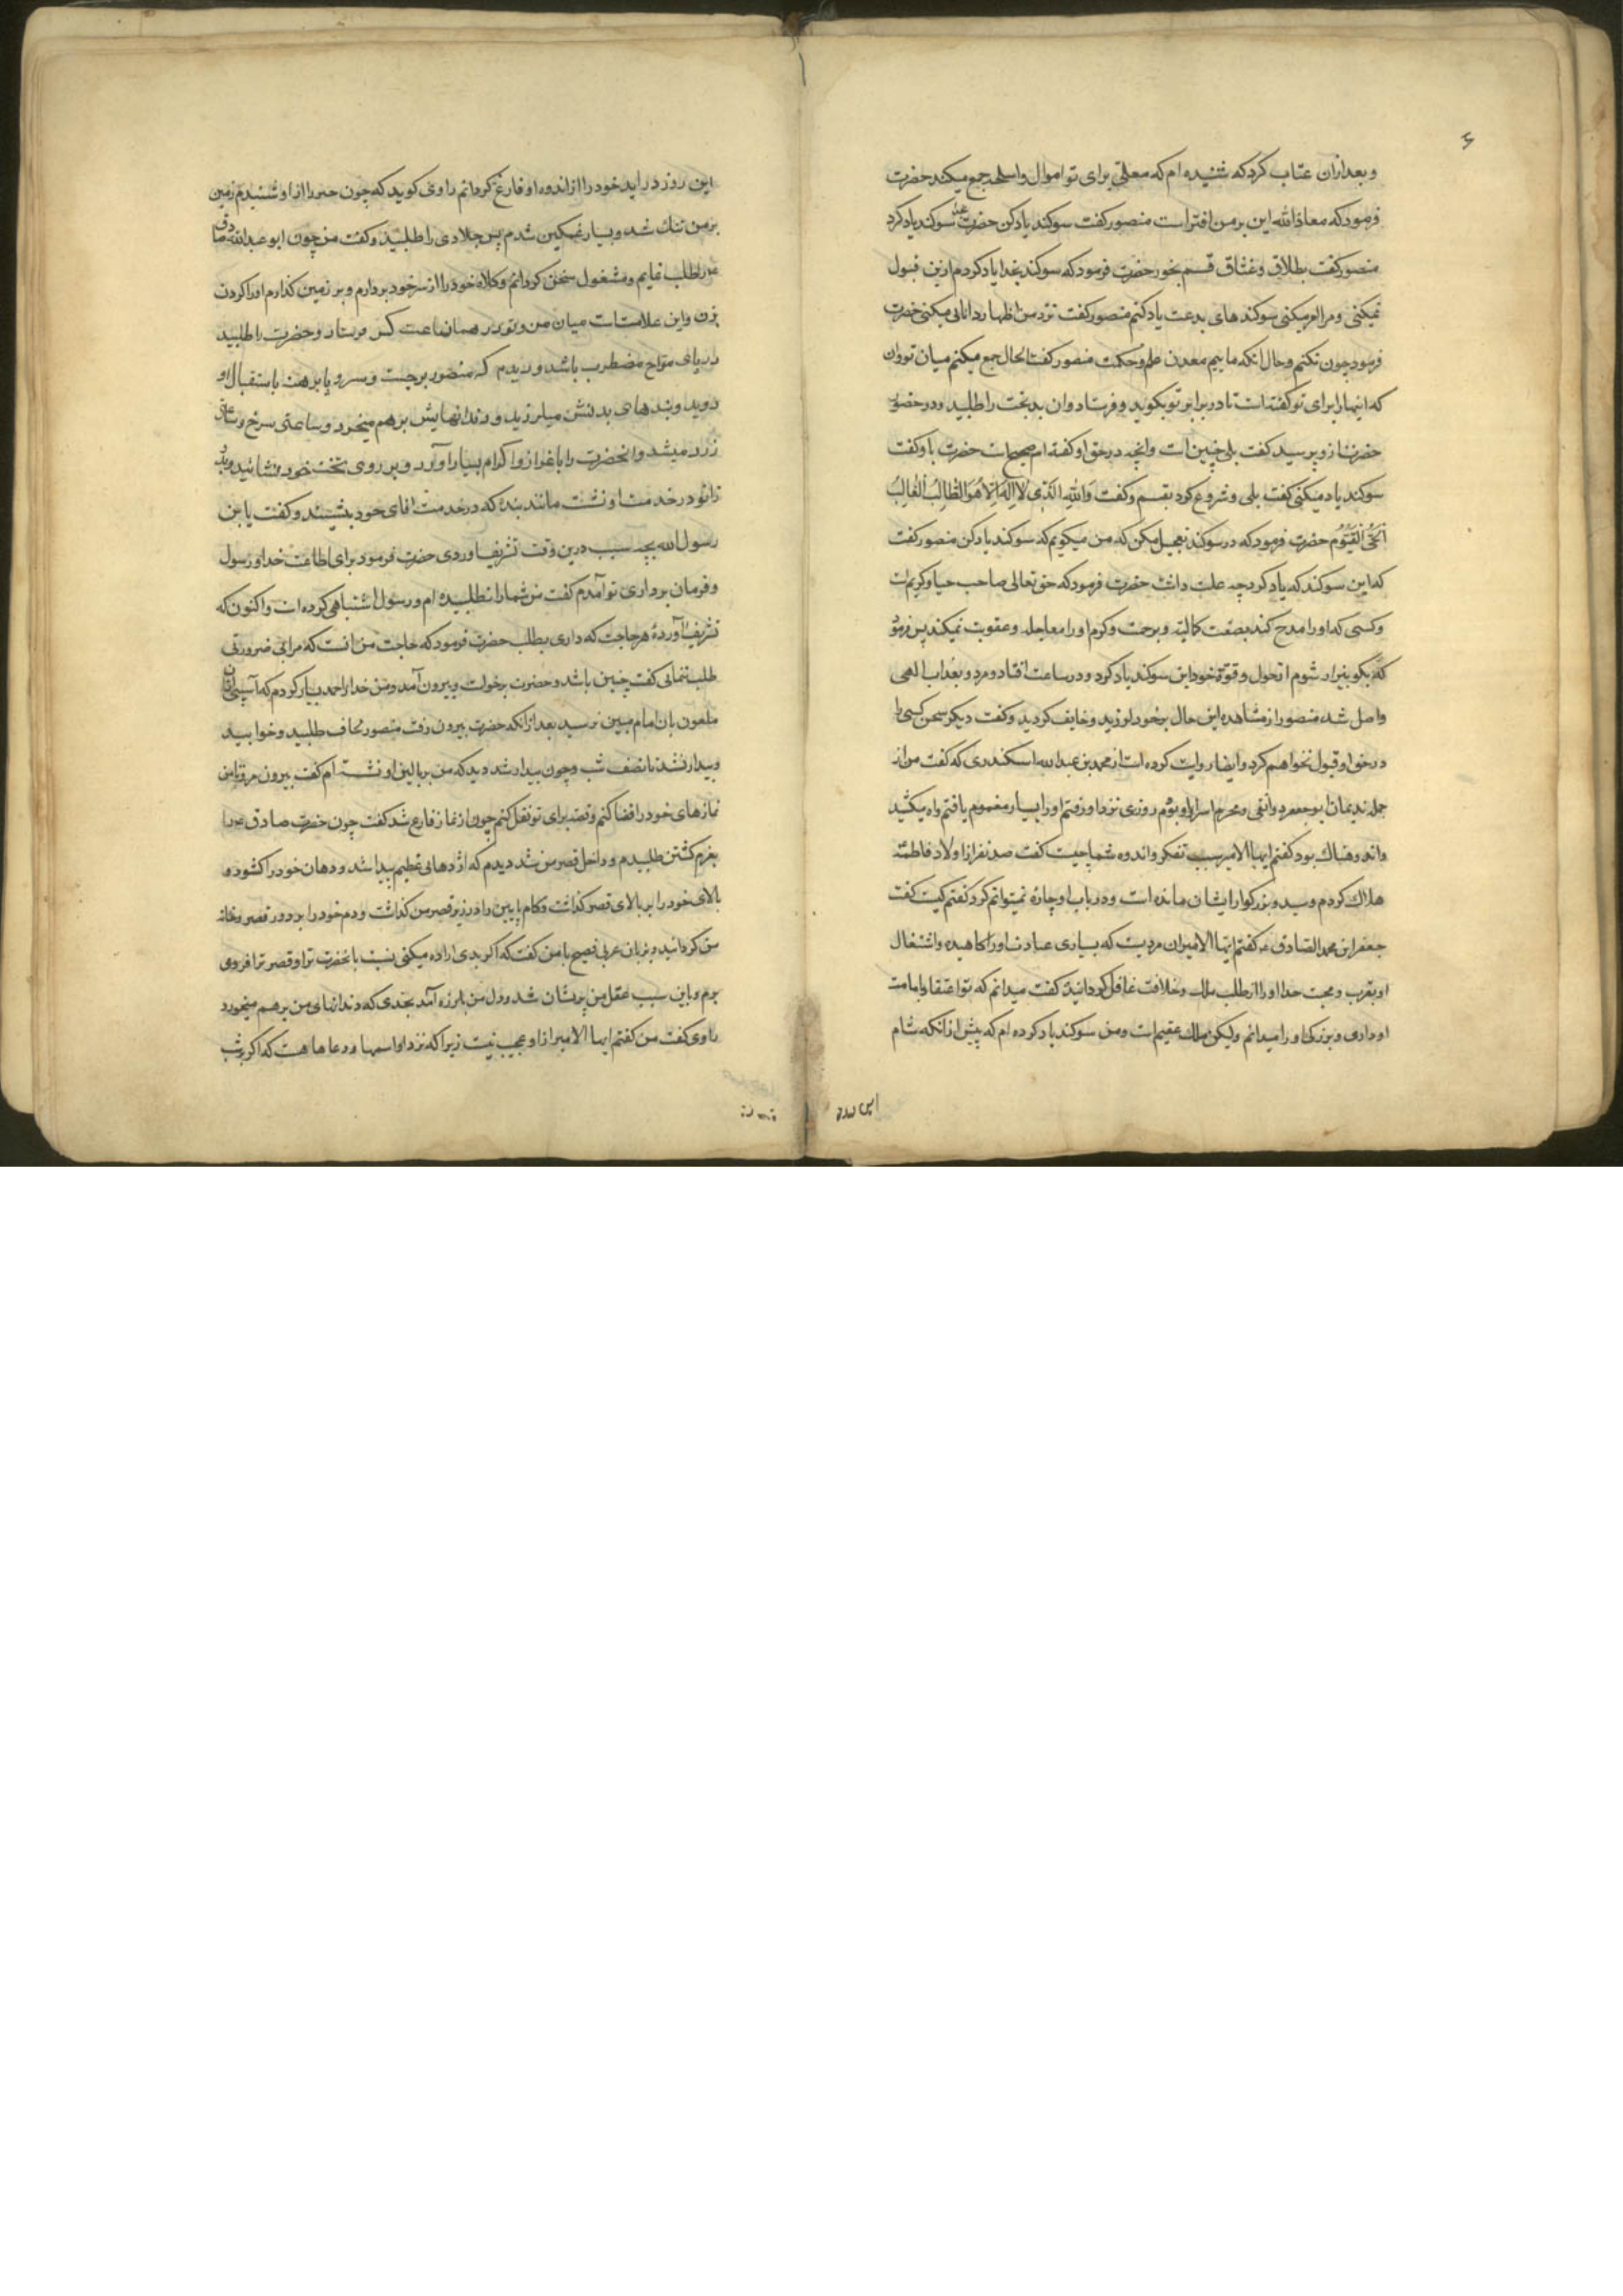 و بعدازان عتاب کرد که شنیده ام که معلّی برای تو اموال و اسلحه جمع میکند حضرت
فرمود که معاذالله این بر من افتراست منصور کفت سوکند یاد کن حضرت سوکند یاد کرد
منصور کفت بطلاق و عتاق قسم بخور حضرت فرمود که سوکند بخدا یاد کردم از من قبول
نمیکنی و مرا امر میکنی سوکند های بدعت یاد کنم منصور کفت نزد من اظهار دانائی میکنی حضرت
فرمود چون نکنم و حال انکه ماییم معدن علم و حکمت منصور کفت الحال جمع میکنم میان تو و ان
که اینها را برای تو کفته است تا در برابر تو بکوید و فرستاد و ان بدبخت را طلبید و در حضور
حضرت از و پرسید کفت بلی چنین است و انچه در حق او کفته ام صحیح است حضرت باو کفت
سوکند یاد میکنی کفت بلی و شروع کرد بقسم و کفت وَاللهِ الَّذی لااِلهَ اِلاّ هُوَ الطّالِبُ الغالِبُ
اَلحَیُّ القَیّوُم حضرت فرمود که در سوکند تعجیل مکن که من میکویم که سوکند یاد کن منصور کفت
که این سوکند که یاد کرد چه علت داشت حضرت فرمود که حق تعالی صاحب حیا و کریم است
و کسی که او را مدح کند بصفت کمالیه و برحمت و کرم او را معاجله و عقوبت نمیکند پس فرمود
که بکو بیزار شوم از حول و قوّة خود این سوکند یاد کرد و در ساعت افتاد و مرد و بعذاب الهی
واصل شد منصور از مشاهده این حال بر خود لرزید و خایف کردید و کفت دیکر سخن کسی را
در حق او قبول نخواهم کرد و ایضا روایت کرده است از محمد بن عبدالله اسکندری که کفت من از
جمله ندیمان ابو جعفر دوانقی و محرم اسرار او بودم روزی نزد او رفتم او را بسیار مغموم یافتم و اه میکشید
و اندوهناک بود کفتم ایها الامیر سبب تفکر و اندوه شما چیست کفت صد نفر از اولاد فاطمه
هلاک کردم و سید و بزرکوار ایشان مانده است و در باب او چاره نمیتوانم کرد کفتم کیست کفت
جعفر ابن محمد الصادق ع کفتم ایها الامیر ان مردیست که بسیاری عبادت او را کاهیده و اشتغال
او بقرب و محبت خدا او را از طلب ملک و خلافت غافل کردانیده کفت میدانم که تو اعتقاد بامامت
او داری و بزرکی او را میدانم ولیکن ملک عقیم است و من سوکند یاد کرده ام که پیش از انکه شام
این روز
این روز در اید خود را از اندوه او فارغ کردانم راوی کوید که چون این را از او شنیدم زمین
بر من تنک شد و بسیار غمکین شدم پس جلادی را طلبید و کفت من چون ابو عبدالله صادق
را طلب نمایم و مشغول سخن کردانم و کلاه خود را از سر خود بردارم و بر زمین کذارم او را کردن
بزن و این علامتست میان من و تو در همان ساعت کس فرستاد و حضرت را طلبید
دریای مواج مضطرب باشد و دیدم که منصور برجست و سر و پا برهنه باستقبال او
دوید و بند های بدنش میلرزید و دندانهایش بر هم میخورد و ساعتی سرخ و ساعتی
زرد میشد و انحضرت را باعزاز و اکرام بسیار آورد و بر روی تخت خود نشانید و بدو
زانو در خدمت او نشست مانند بنده که در خدمت اقای خود بنشیند و کفت یابن
رسول الله بچه سبب درین وقت تشریف آوردی حضرت فرمود برای اطاعت خدا و رسول
و فرمان برداری تو آمدم کفت من شما را نطلبیده ام و رسول اشتباهی کرده است و اکنون که
تشریف آورده هر حاجت که داری بطلب حضرت فرمود که حاجت من انست که مرا بی ضرورتی
طلب ننمائی کفت چنین باشد و حضرت برخواست و بیرون آمد و من خدا را حمد بسیار کردم که آسیبی ازان
ملعون بان امام مبین نرسید بعد از انکه حضرت بیرون رفت منصور لحاف طلبید و خوابید
و بیدار نشد تا نصف شب و چون بیدار شد دید که من بر بالین او نشسته ام کفت بیرون مرو تا من
نمازهای خود را قضا کنم و قصه برای تو نقل کنم چون از نماز فارغ شد کفت چون حضرت صادق ع را
بعزم کشتن طلبیدم و داخل قصر من شد دیدم که اژدهای عظیم پیدا شد و دهان خود را کشود و
بالای خود را بر بالای قصر کذاشت و کام پایین را در زیر قصر من کذاشت و دم خود را بر دور قصر و خانه
من کردانید و بزبان عربی فصیح با من کفت که اکر بدی اراده میکنی نسبت بانحضرت ترا و قصر ترا فرو می
برم و باین سبب عقل من پریشان شد و دل من بلرزه آمد بحدی که دندانهای من بر هم میخورد
راوی کفت من کفتم ایها الامیر از او عجیب نیست زیرا که نزد او اسمها و دعاها هست که اکر بر شب